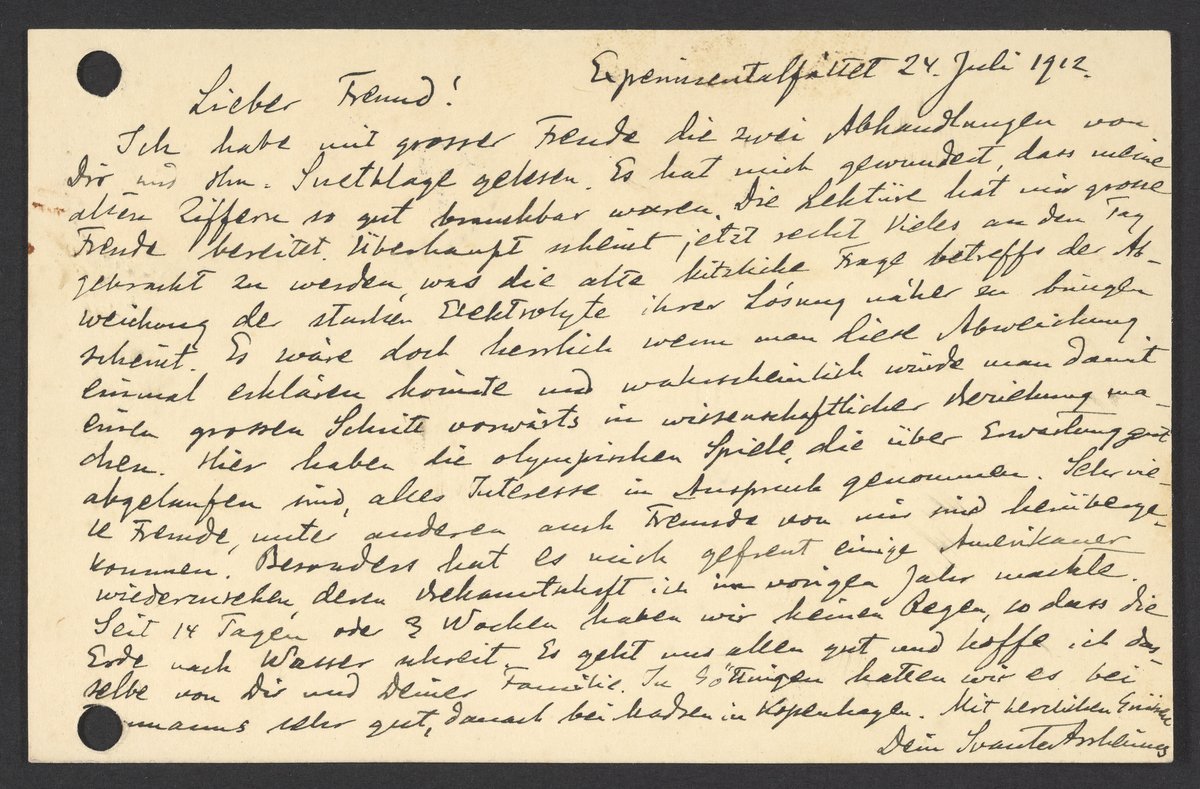 Experimentalfältet 24. Juli 1912.
Lieber Freund!
Ich habe mit grosser Freude die zwei Abhandlungen von
Dir und Hrn. Snethlage gelesen. Es hat mich gewundert, dass meine
alten Ziffern so gut brauchbar waren. Die Lektüre hat mir grosse
Freude bereitet. Überhaupt scheint jetzt recht Vieles an den Tag
gebracht zu werden, was die alte kitzliche Frage betreffs der Ab-
weichung der starken Elektrolyte ihrer Lösung näher zu bringen
scheint. Es wäre doch herrlich wenn man diese Abweichung
einmal erklären könnte und wahrscheinlich würde man damit
einen grossen Schritt vorwärts in wissenschaftlicher Beziehung ma-
chen. Hier haben die olympischen Spiele, die über Erwartung gut
abgelaufen sind, alles Interesse in Anspruch genommen. Sehr vie-
le Fremde, unter anderen auch Freunde von mir sind herüberge-
kommen. Besonders hat es mich gefreut einige Amerikaner
wiederzusehen, deren Bekanntschaft ich im vorigen Jahr machte.
Seit 14 Tagen oder 3 Wochen haben wir keinen Regen, so dass die
Erde nach Wasser schreit. Es geht uns allen gut und hoffe ich das-
selbe von Dir und Deiner Familie. In Göttingen hatten wir es bei
sehr gut, danach bei Madsen in Kopenhagen. Mit herzlichen Grüssen
Dein Svante Arrhenius